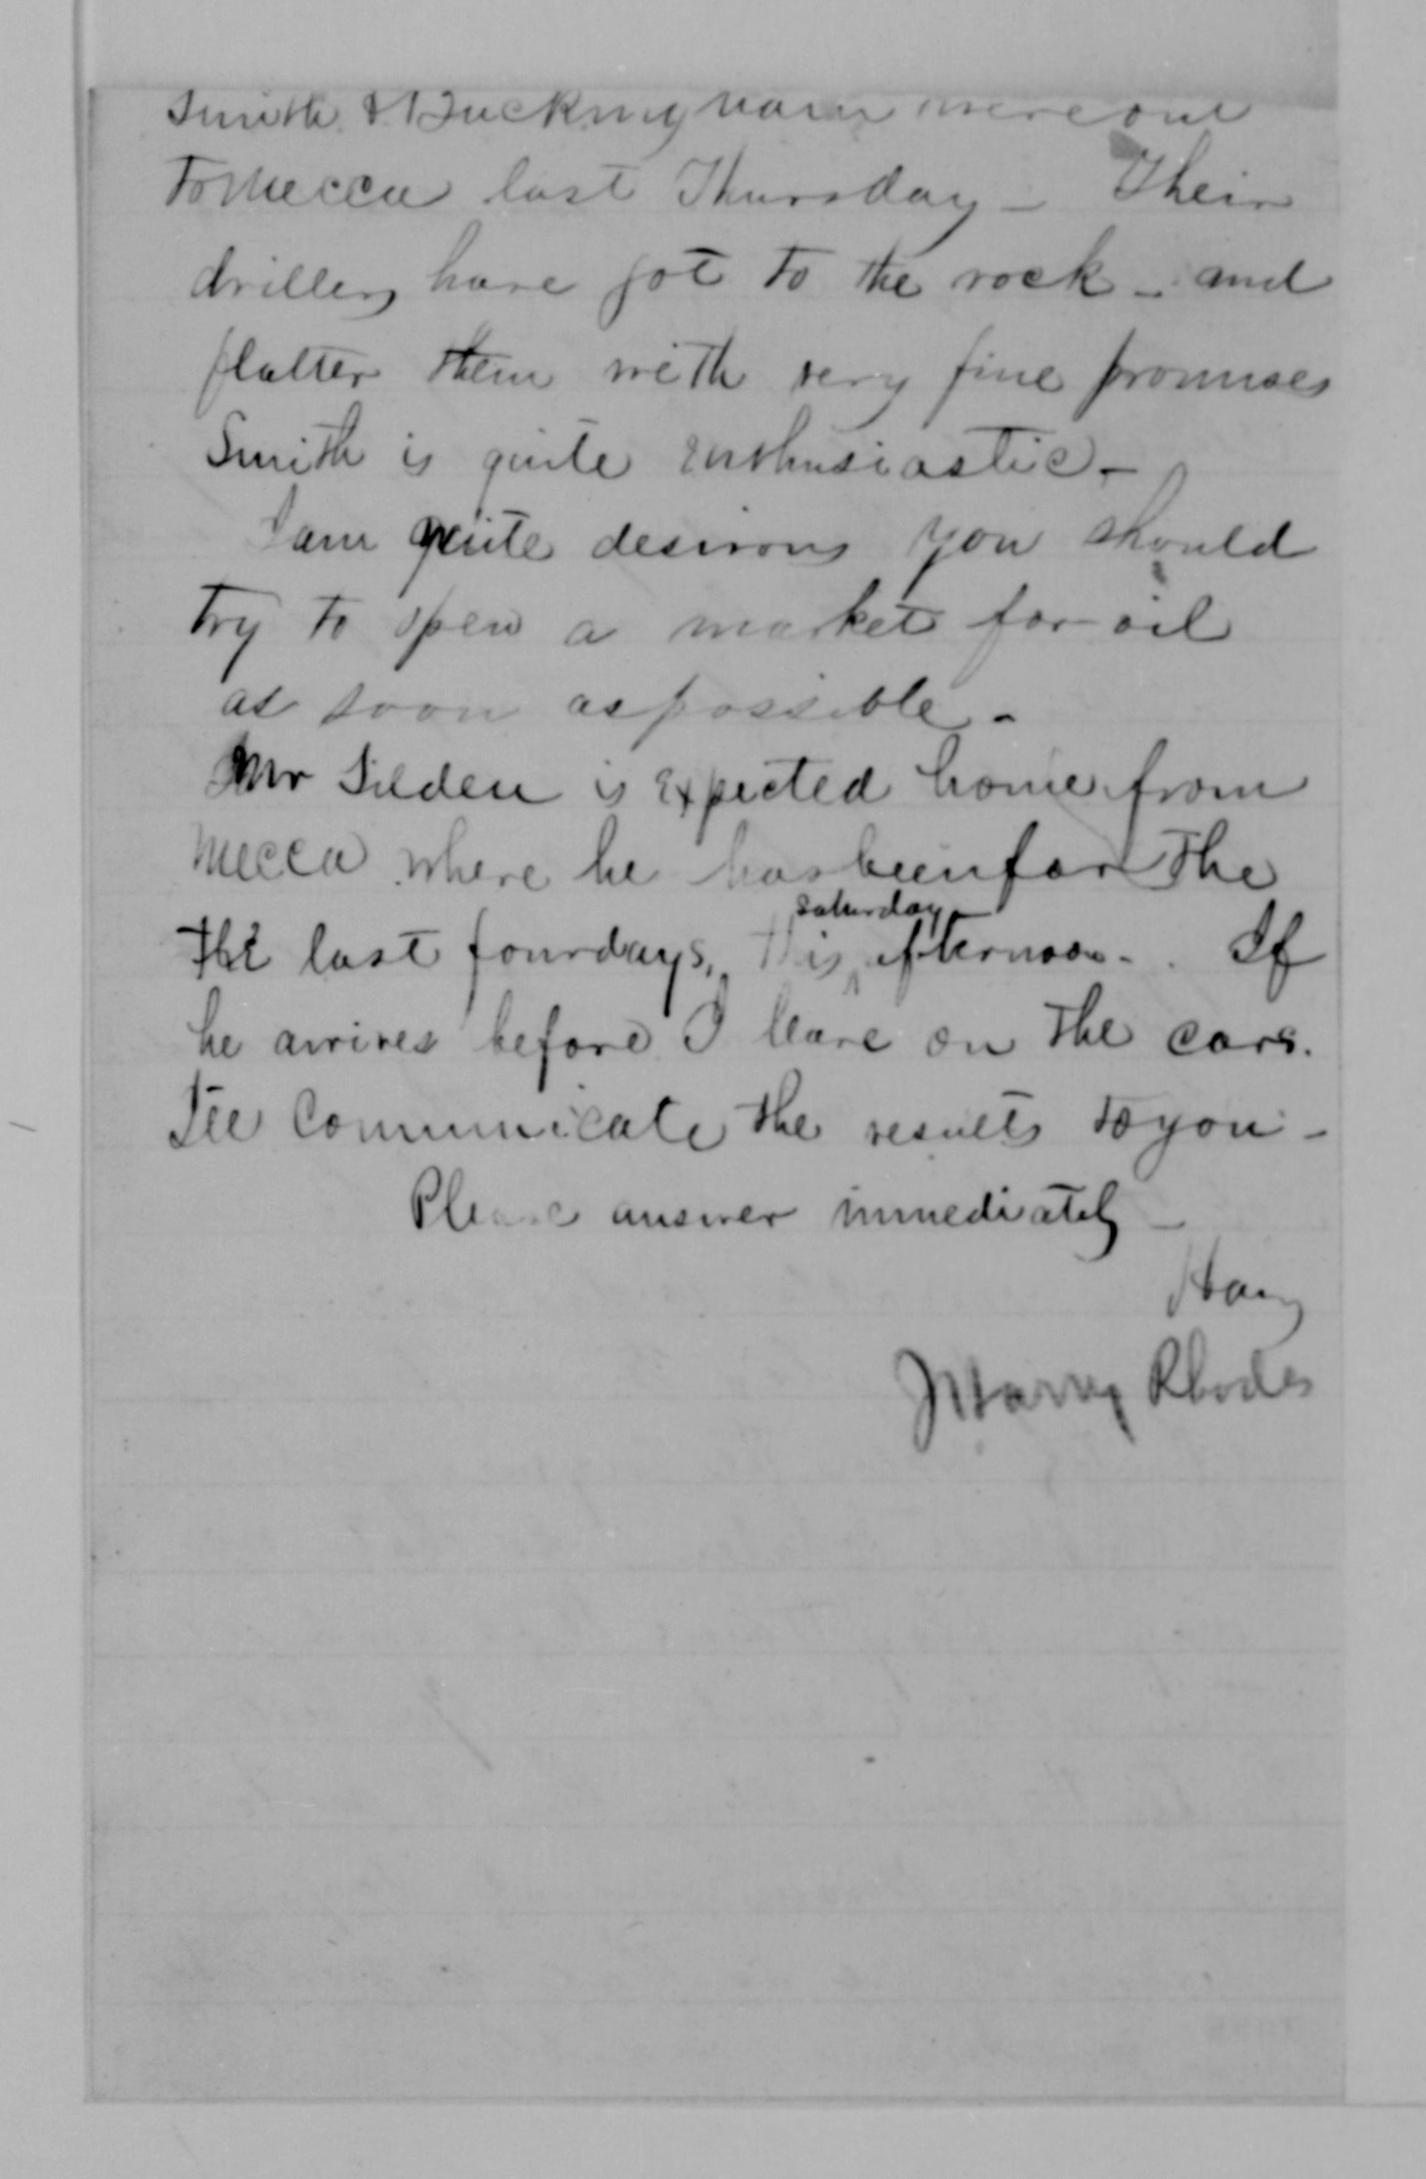 Smith & Buckingham were out
To Mecca last Thursday - Their
drillers have got to the rock - and
flatter them with very fine promises
Smith is quite enthusiastic -
I am quite desirous you should
try to open a market for oil
as soon as possible -
Mr Tilden is expected home from
Mecca where he has been for the
the last four days, this afternoon - . If
Saturday
he arrives before I leave on the cars.
I'll communicate the results to you -
Please answer immediately -
Harry
Harry Rhodes